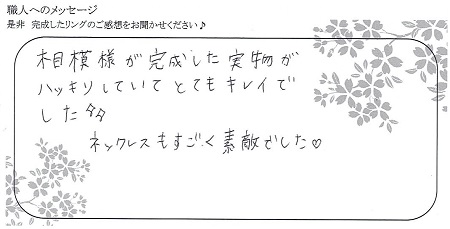 職人へのメッセージ
是非 完成したリングのご感想をお聞かせください♪
相模様が完成した実物が
ハッキリしていてとてもキレイで
した
ネックレスもすごく素敵でした♡